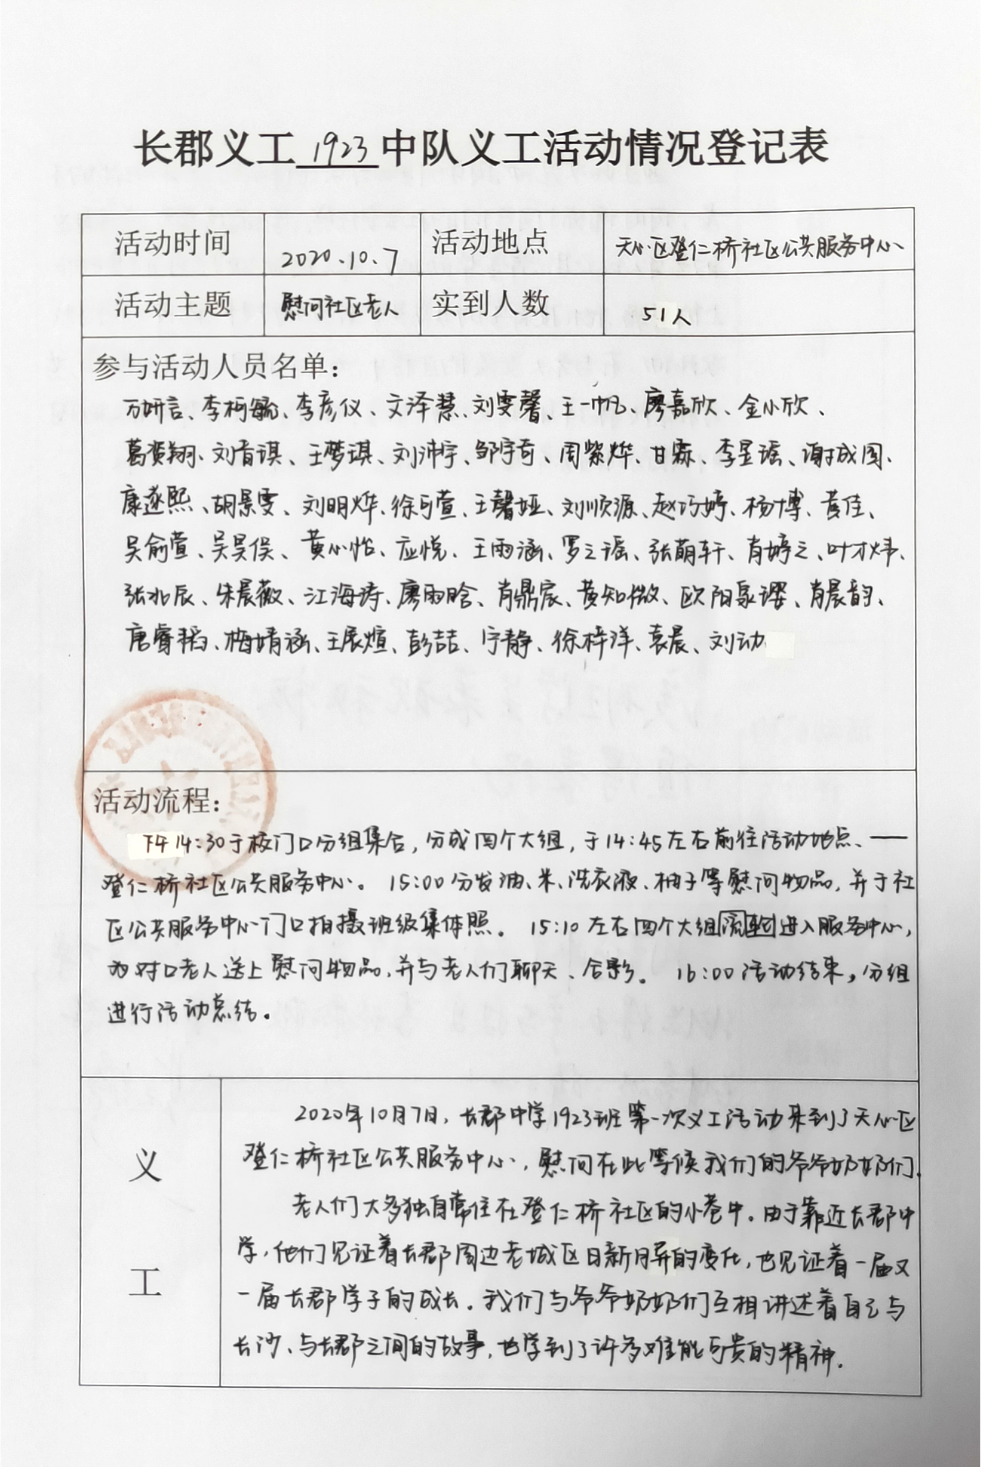 长郡义工 1923 中队义工活动情况登记表
活动时间 2020.10.7 活动地点 天心区登仁桥社区公共服务中心
活动主题 慰问社区老人 实到人数 51人
参与活动人员名单：
万妍言、李柯敏、李彦仪、文泽慧、刘雯馨、王一帆、廖嘉欣、金小欣、
葛奕翔、刘香淇、王梦琪、刘沛宇、邹宇奇、周紫烨、甘霖、李昱瑶、谢成周、
康遂熙、胡景雯、刘明烨、徐可萱、王馨娅、刘顺源、赵巧婷、杨博、黄佳、
吴俞萱、吴昊俣、黄心怡、应悦、王雨涵、罗之谣、张萌轩、肖婷之、叶才炜、
张兆辰、朱晨薇、江海涛、廖雨晗、肖鼎宸、黄知微、欧阳泉谬、肖晨韵、
唐睿韬、梅婧涵、王展煊、彭喆、宁静、徐梓洋、袁晨、刘动
活动流程：
下午14:30于校门口分组集合，分成四个大组，于14:45左右前往活动地点、——
登仁桥社区公共服务中心。15:00分发油、米、洗衣液、柚子等慰问物品，并于社
区公共服务中心门口拍摄班级集体照。15:10左右四个大组流動进入服务中心，
为对口老人送上慰问物品，并与老人们聊天、合影。16:00活动结束，分组
进行活动总结。
义
工
2020年10月7日，长郡中学1923班第一次义工活动来到了天心区
登仁桥社区公共服务中心，慰问在此等候我们的爷爷奶奶们.
老人们大多独自常住在登仁桥社区的小巷中。由于靠近长郡中
学，他们见证着长郡周边老城区日新月异的变化，也见证着一届又
一届长郡学子的成长。我们与爷爷奶奶们互相讲述着自己与
长沙、与长郡之间的故事，也学到了许多难能可贵的精神.